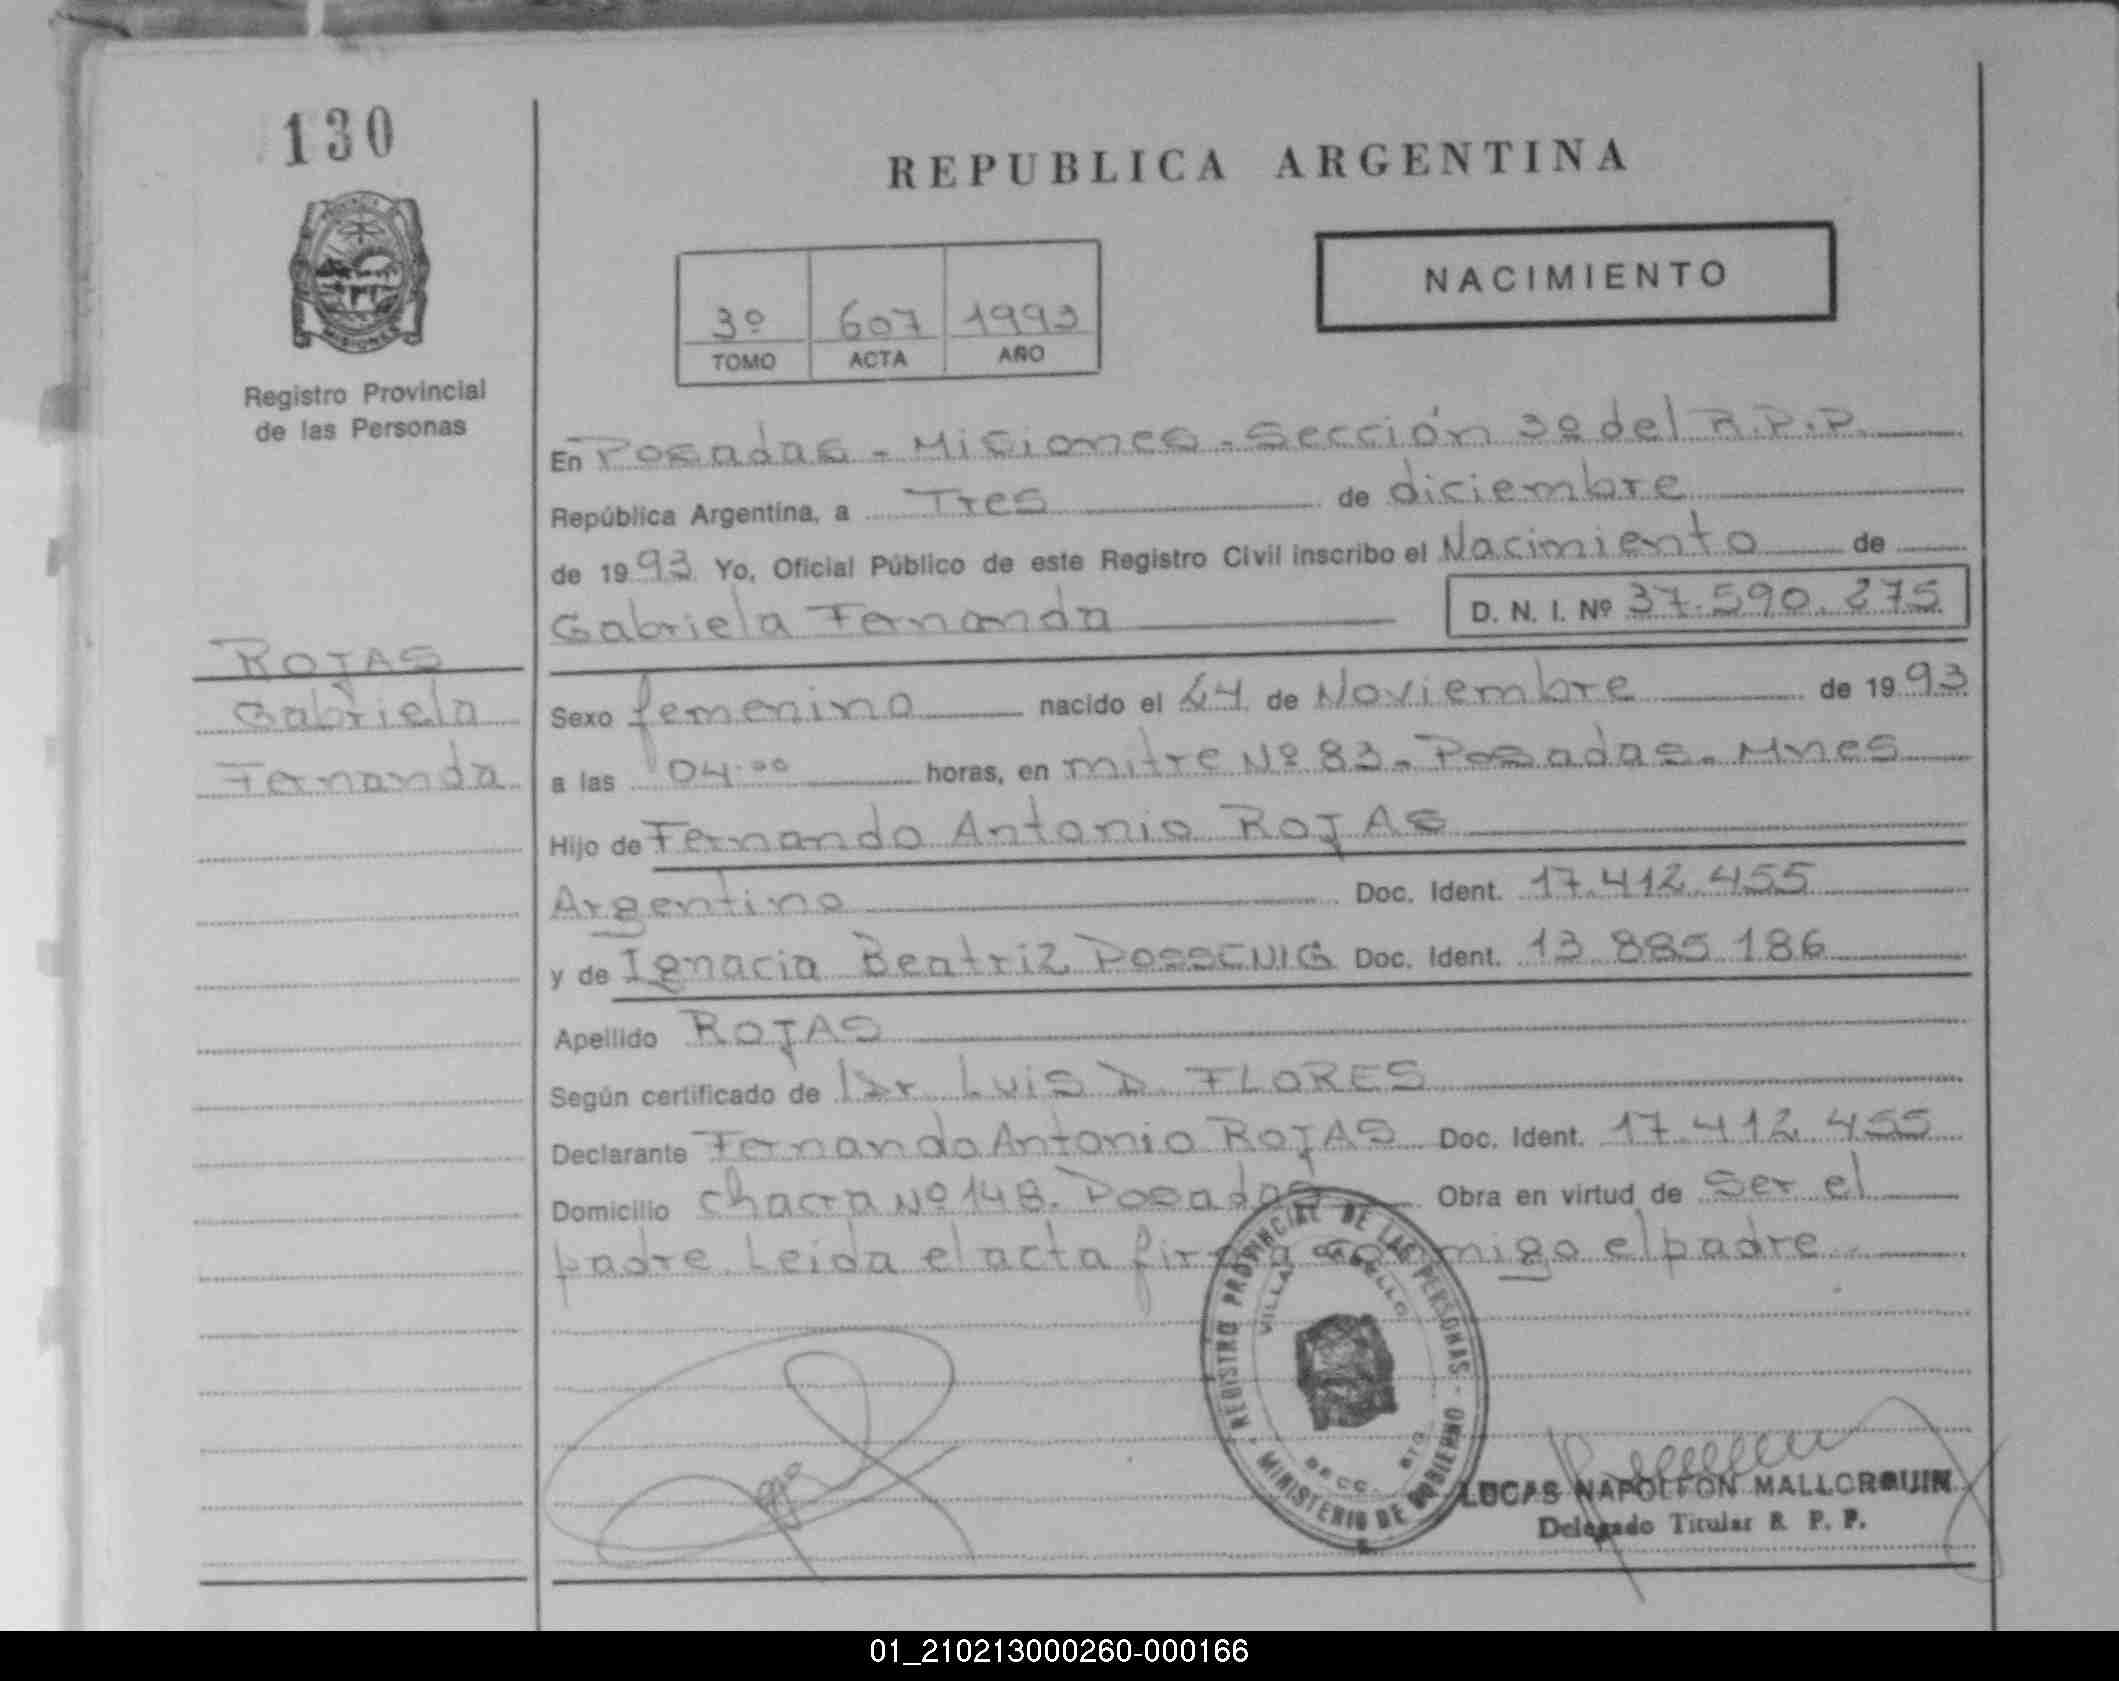 130
REPUBLICA ARGENTINA
NACIMIENTO
3º 607 1993
TOMO ACTA AÑO
Registro Provincial
de las Personas
En Posadas - Misiones - Sección 3º del R.P.P.
República Argentina, a Tres de diciembre
de 1993 Yo, Oficial Público de este Registro Civil inscribo el Nacimiento de
Gabriela Fernanda D. N. I. Nº 37.590.275
ROJAS
Gabriela
Fernanda
Sexo femenino nacido el 24 de Noviembre de 1993
a las 04.00 horas, en mitre Nº 83 - Posadas - Mnes
Hijo de Fernando Antonio ROJAS
Argentino Doc. Ident. 17.412.455
y de Ignacia Beatriz Doc. Ident. 13.885.186
Apellido ROJAS
Según certificado de Dr Luis D. FLORES
Declarante Fernando Antonio ROJAS Doc. Ident. 17.412.455
Domicilio chacra Nº 148. Posadas Obra en virtud de ser el
padre. Leída el acta firma conmigo el padre
REGISTRO PROVINCIAL DE LAS PERSONAS - MINISTERIO DE GOBIERNO -
VILLA
LUCAS NAPOLEON MALLORQUIN
Delegado Titular R. P. P.
01_210213000260-000166